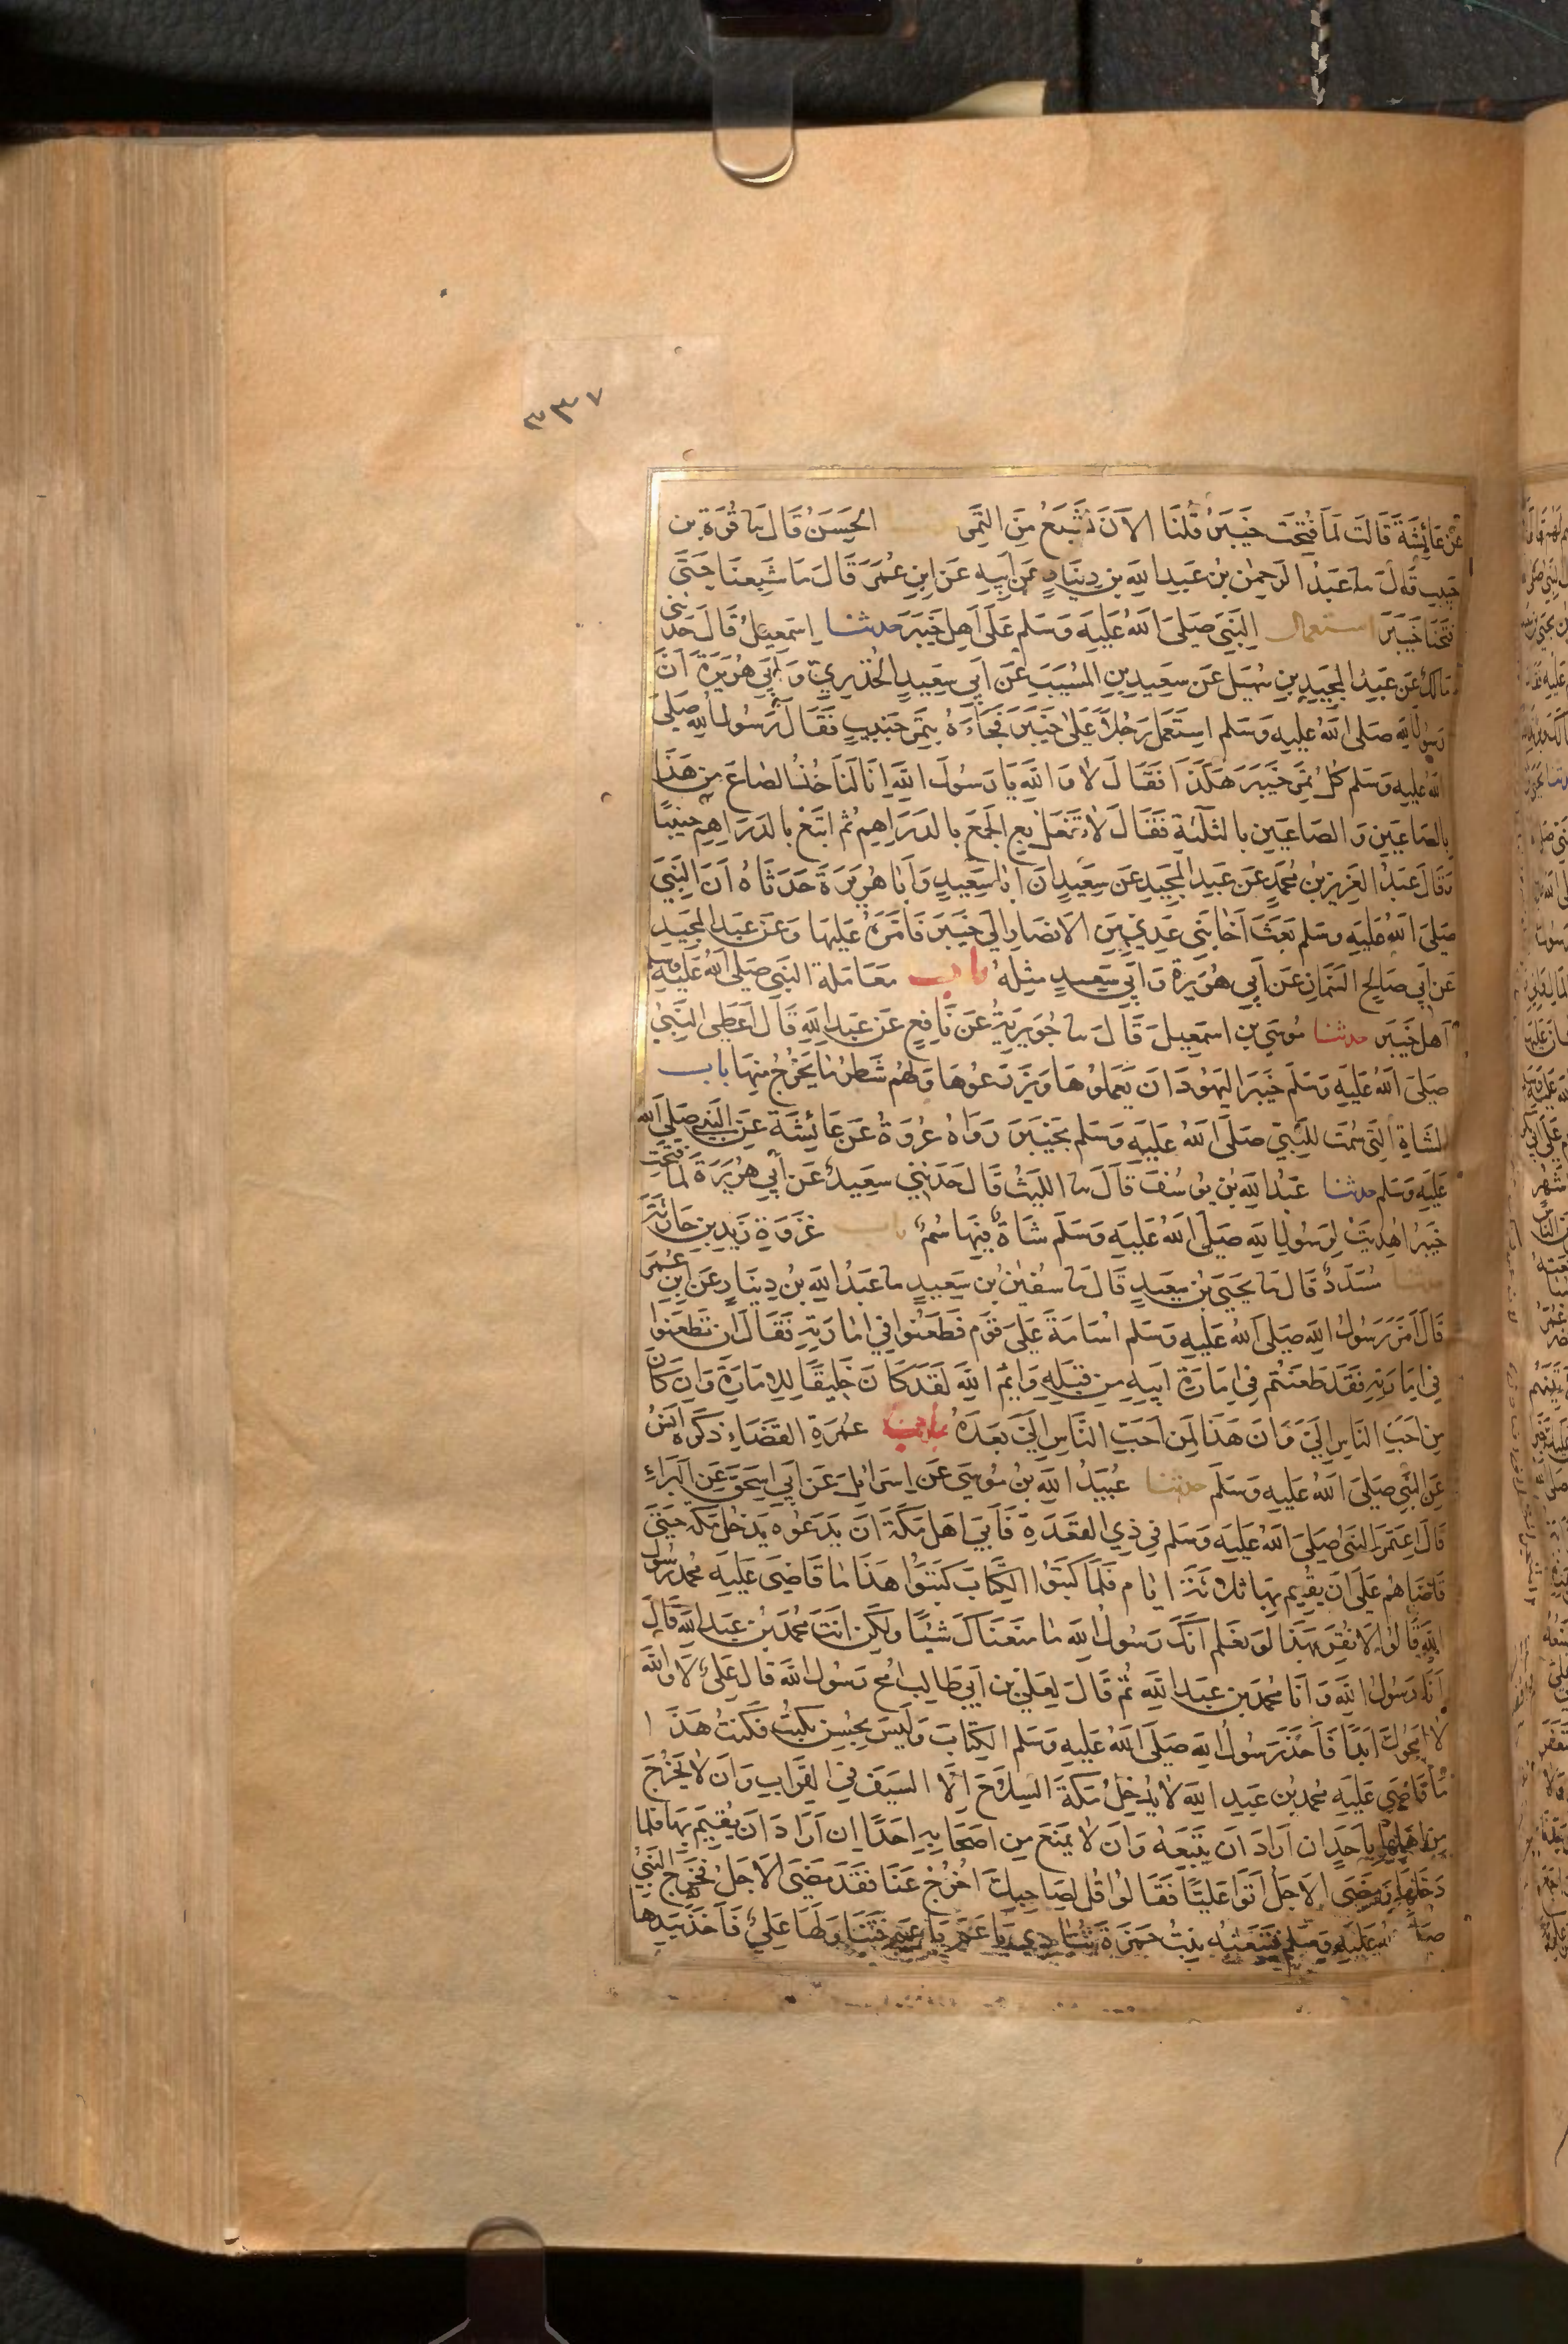 ٣٣٧
عَنْ عَائِشَةَ قَالَتْ لَمَّا فُتِحَتْ خَيْبَرُ قُلْنَا الآنَ نَشْبَعُ مِنَ التَّمْرِ الحَسَنُ قَالَ نا قُرَّةُ بن
حَبِيبٍ قَالَ نا عَبْدُ الرَّحْمٰنِ بْنُ عَبْدِ اللهِ بْنِ دِينَارٍ عَنْ اَبِيهِ عَنِ ابْنِ عُمَرَ قَالَ مَا شَبِعْنَا حَتَّى
فَتَحْنَا خَيْبَرَ استعمال النَّبِيِّ صَلَّى اللهُ عَلَيْهِ وَسَلَّم عَلَى اَهْلِ خَيْبَرَ حدثنا اِسْمٰعِيلُ قَالَ حَدَّثَنِي
مَالِكٌ عَنْ عَبْدِ الْمَجِيدِ بْنِ سُهَيْلٍ عَنْ سَعِيدِ بْنِ الْمُسَيِّبِ عَنْ اَبِي سَعِيدٍ الْخُدْرِيِّ وَاَبِي هُرَيْرَةَ اَنَّ
رَسُولَ اللهِ صَلَّى اللهُ عَلَيْهِ وَسَلَّم اسْتَعْمَلَ رَجُلًا عَلَى خَيْبَرَ فَجَاءَهُ بِتَمْرٍ جَنِيبٍ فَقَالَ رَسُولُ اللهِ صَلَّى
اللهُ عَلَيْهِ وَسَلَّم كُلُّ تَمْرِ خَيْبَرَ هَكَذَا فَقَالَ لَا وَاللهِ يَا رَسُولَ اللهِ اِنَّا لَنَأْخُذُ الصَّاعَ مِنْ هَذَا
بِالصَّاعَيْنِ وَالصَّاعَيْنِ بِالثَّلٰثَةِ فَقَالَ لَا تَفْعَلْ بِعِ الْجَمْعَ بِالدَّرَاهِمِ ثُمَّ ابْتَعْ بِالدَّرَاهِمِ جَنِيبًا
وَقَالَ عَبْدُ الْعَزِيزِ بْنُ مُحَمَّدٍ عَنْ عَبْدِ الْمَجِيدِ عَنْ سَعِيدٍ اَنَّ اَبَا سَعِيدٍ وَاَبَا هُرَيْرَةَ حَدَّثَاهُ اَنَّ النَّبِيَّ
صَلَّى اللهُ عَلَيْهِ وَسَلَّم بَعَثَ اَخَا بَنِي عَدِيٍّ مِنَ الْاَنْصَارِ اِلَى خَيْبَرَ فَاَمَّرَهُ عَلَيْهَا وَعَنْ عَبْدِ الْمَجِيدِ
عَنْ اَبِي صَالِحٍ السَّمَّانِ عَنْ اَبِي هُرَيْرَةَ وَاَبِي سَعِيدٍ مِثْلَهُ باب مُعَامَلَةِ النَّبِيِّ صَلَّى اللهُ عَلَيْهِ وَسلم
اَهْلَ خَيْبَرَ حدثنا مُوسَى بْن اسْمٰعِيلَ قَالَ نا جُوَيْرِيَةُ عَنْ نَافِعٍ عَنْ عَبْدِ اللهِ قَالَ اَعْطَى النَّبِيُّ
صَلَّى اللهُ عَلَيْهِ وَسَلَّمَ خَيْبَرَ الْيَهُودَ اَنْ يَعْمَلُوهَا وَيَزْرَعُوهَا وَلَهُمْ شَطْرُ مَا يَخْرُجُ مِنْهَا باب
الشَّاةِ الَّتِي سُمَّتْ لِلنَّبِيِّ صَلَّى اللهُ عَلَيْهِ وَسَلَّم بِخَيْبَرَ رَوَاهُ عُرْوَةُ عَنْ عَائِشَةَ عَنِ النَّبِيِّ صَلَّى الله
عَلَيْهِ وَسَلَّم حدثنا عَبْدُ اللهِ بْنُ يُوسُفَ قَالَ نا اللَّيْثُ قَالَ حَدَّثَنِي سَعِيدٌ عَنْ اَبِي هُرَيْرَةَ لَمَّا فُتِحَتْ
خَيْبَرُ اُهْدِيَتْ لِرَسُولِ اللهِ صَلَّى اللهُ عَلَيْهِ وَسَلَّمَ شَاةٌ فِيهَا سُمٌّ باب غَزْوَةِ زَيْدِ بْنِ حَارِثَةَ
حدثنا مُسَدَّدٌ قَالَ نا يَحْيَى بْنُ سَعِيدٍ قَالَ نا سُفْيٰنُ بْنُ سَعِيدٍ نا عَبْدُ اللهِ بْنُ دِينَارٍ عَنِ ابْنِ عُمَرَ
قَالَ اَمَّرَ رَسُولُ اللهِ صَلَّى اللهُ عَلَيْهِ وَسَلَّم اُسَامَةَ عَلَى قَوْمٍ فَطَعَنُوا فِي اِمَارَتِهِ فَقَالَ اِنْ تَطْعَنُوا
فِي اِمَارَتِهِ فَقَدْ طَعَنْتُمْ فِي اِمَارَةِ اَبِيهِ مِنْ قَبْلِهِ وَايْمُ اللهِ لَقَدْ كَانَ خَلِيقًا لِلْاِمَارَةِ وَاِنْ كَانَ
مِنْ اَحَبِّ النَّاسِ اِلَيَّ وَاِنَّ هَذَا لَمِنْ اَحَبِّ النَّاسِ اِلَيَّ بَعْدَهُ باب عُمْرَةِ الْقَضَاءِ ذَكَرَهُ اَنَسٌ
عَنِ النَّبِيِّ صَلَّى اللهُ عَلَيْهِ وَسَلَّم حدثنا عُبَيْدُ اللهِ بْنُ مُوسَى عَنْ اِسْرَائِيلَ عَنْ اَبِي اِسْحٰقَ عَنِ الْبَرَاءِ
قَالَ اعْتَمَرَ النَّبِيُّ صَلَّى اللهُ عَلَيْهِ وَسَلَّم فِي ذِي الْقَعْدَةِ فَاَبَى اَهْلُ مَكَّةَ اَنْ يَدَعُوهُ يَدْخُلُ مَكَّةَ حَتَّى
قَاضَاهُمْ عَلَى اَنْ يُقِيمَ بِهَا ثَلَاثَةَ اَيَّامٍ فَلَمَّا كَتَبُوا الْكِتَابَ كَتَبُوا هَذَا مَا قَاضَى عَلَيْهِ مُحَمَّدٌ رَسُولُ
اللهِ قَالُوا لَا نُقِرُّ بِهَذَا لَوْ نَعْلَمُ اَنَّكَ رَسُولُ اللهِ مَا مَنَعْنَاكَ شَيْئًا وَلَكِنْ اَنْتَ مُحَمَّدُ بْنُ عَبْدِ اللهِ قَالَ
اَنَا رَسُولُ اللهِ وَاَنَا مُحَمَّدُ بْنُ عَبْدِ اللهِ ثُمَّ قَالَ لِعَلِيِّ بْنِ اَبِي طَالِبٍ امْحُ رَسُولَ اللهِ قَالَ عَلِيٌّ لَا وَاللهِ
لَا اَمْحُوكَ اَبَدًا فَاَخَذَ رَسُولُ اللهِ صَلَّى اللهُ عَلَيْهِ وَسَلَّم الْكِتَابَ وَلَيْسَ يُحْسِنُ يَكْتُبُ فَكَتَبَ هَذَا
مَا قَاضَى عَلَيْهِ مُحَمَّدُ بْنُ عَبْدِ اللهِ لَا يُدْخِلُ مَكَّةَ السِّلَاحَ اِلَّا السَّيْفَ فِي الْقِرَابِ وَاَنْ لَا يَخْرُجَ
مِنْ اَهْلِهَا بِاَحَدٍ اِنْ اَرَادَ اَنْ يَتْبَعَهُ وَاَنْ لَا يَمْنَعَ مِنْ اَصْحَابِهِ اَحَدًا اِنْ اَرَادَ اَنْ يُقِيمَ بِهَا فَلَمَّا
دَخَلَهَا وَمَضَى الْاَجَلُ اَتَوْا عَلِيًّا فَقَالُوا قُلْ لِصَاحِبِكَ اخْرُجْ عَنَّا فَقَدْ مَضَى الْاَجَلُ فَخَرَجَ النَّبِيُّ
صلى الله عَلَيْهِ وَسَلَّم فَتَبِعَتْهُ بِنْتُ حَمْزَةَ تُنَادِي يَا عَمِّ يَا عَمِّ فَتَنَاوَلَهَا عَلِيٌّ فَاَخَذَ بِيَدِهَا